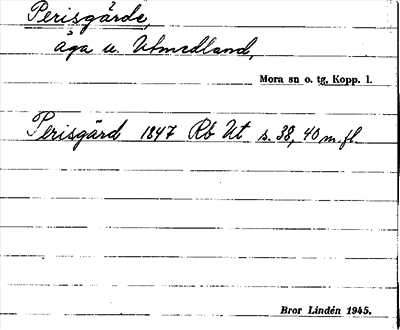 Perisgärde,
äga u. Utmedland,
Mora sn o. tg, Kopp. l.
Perisgärd 1847 Rb Ut s. 38, 40 m.fl.
Bror Lindén 1945.